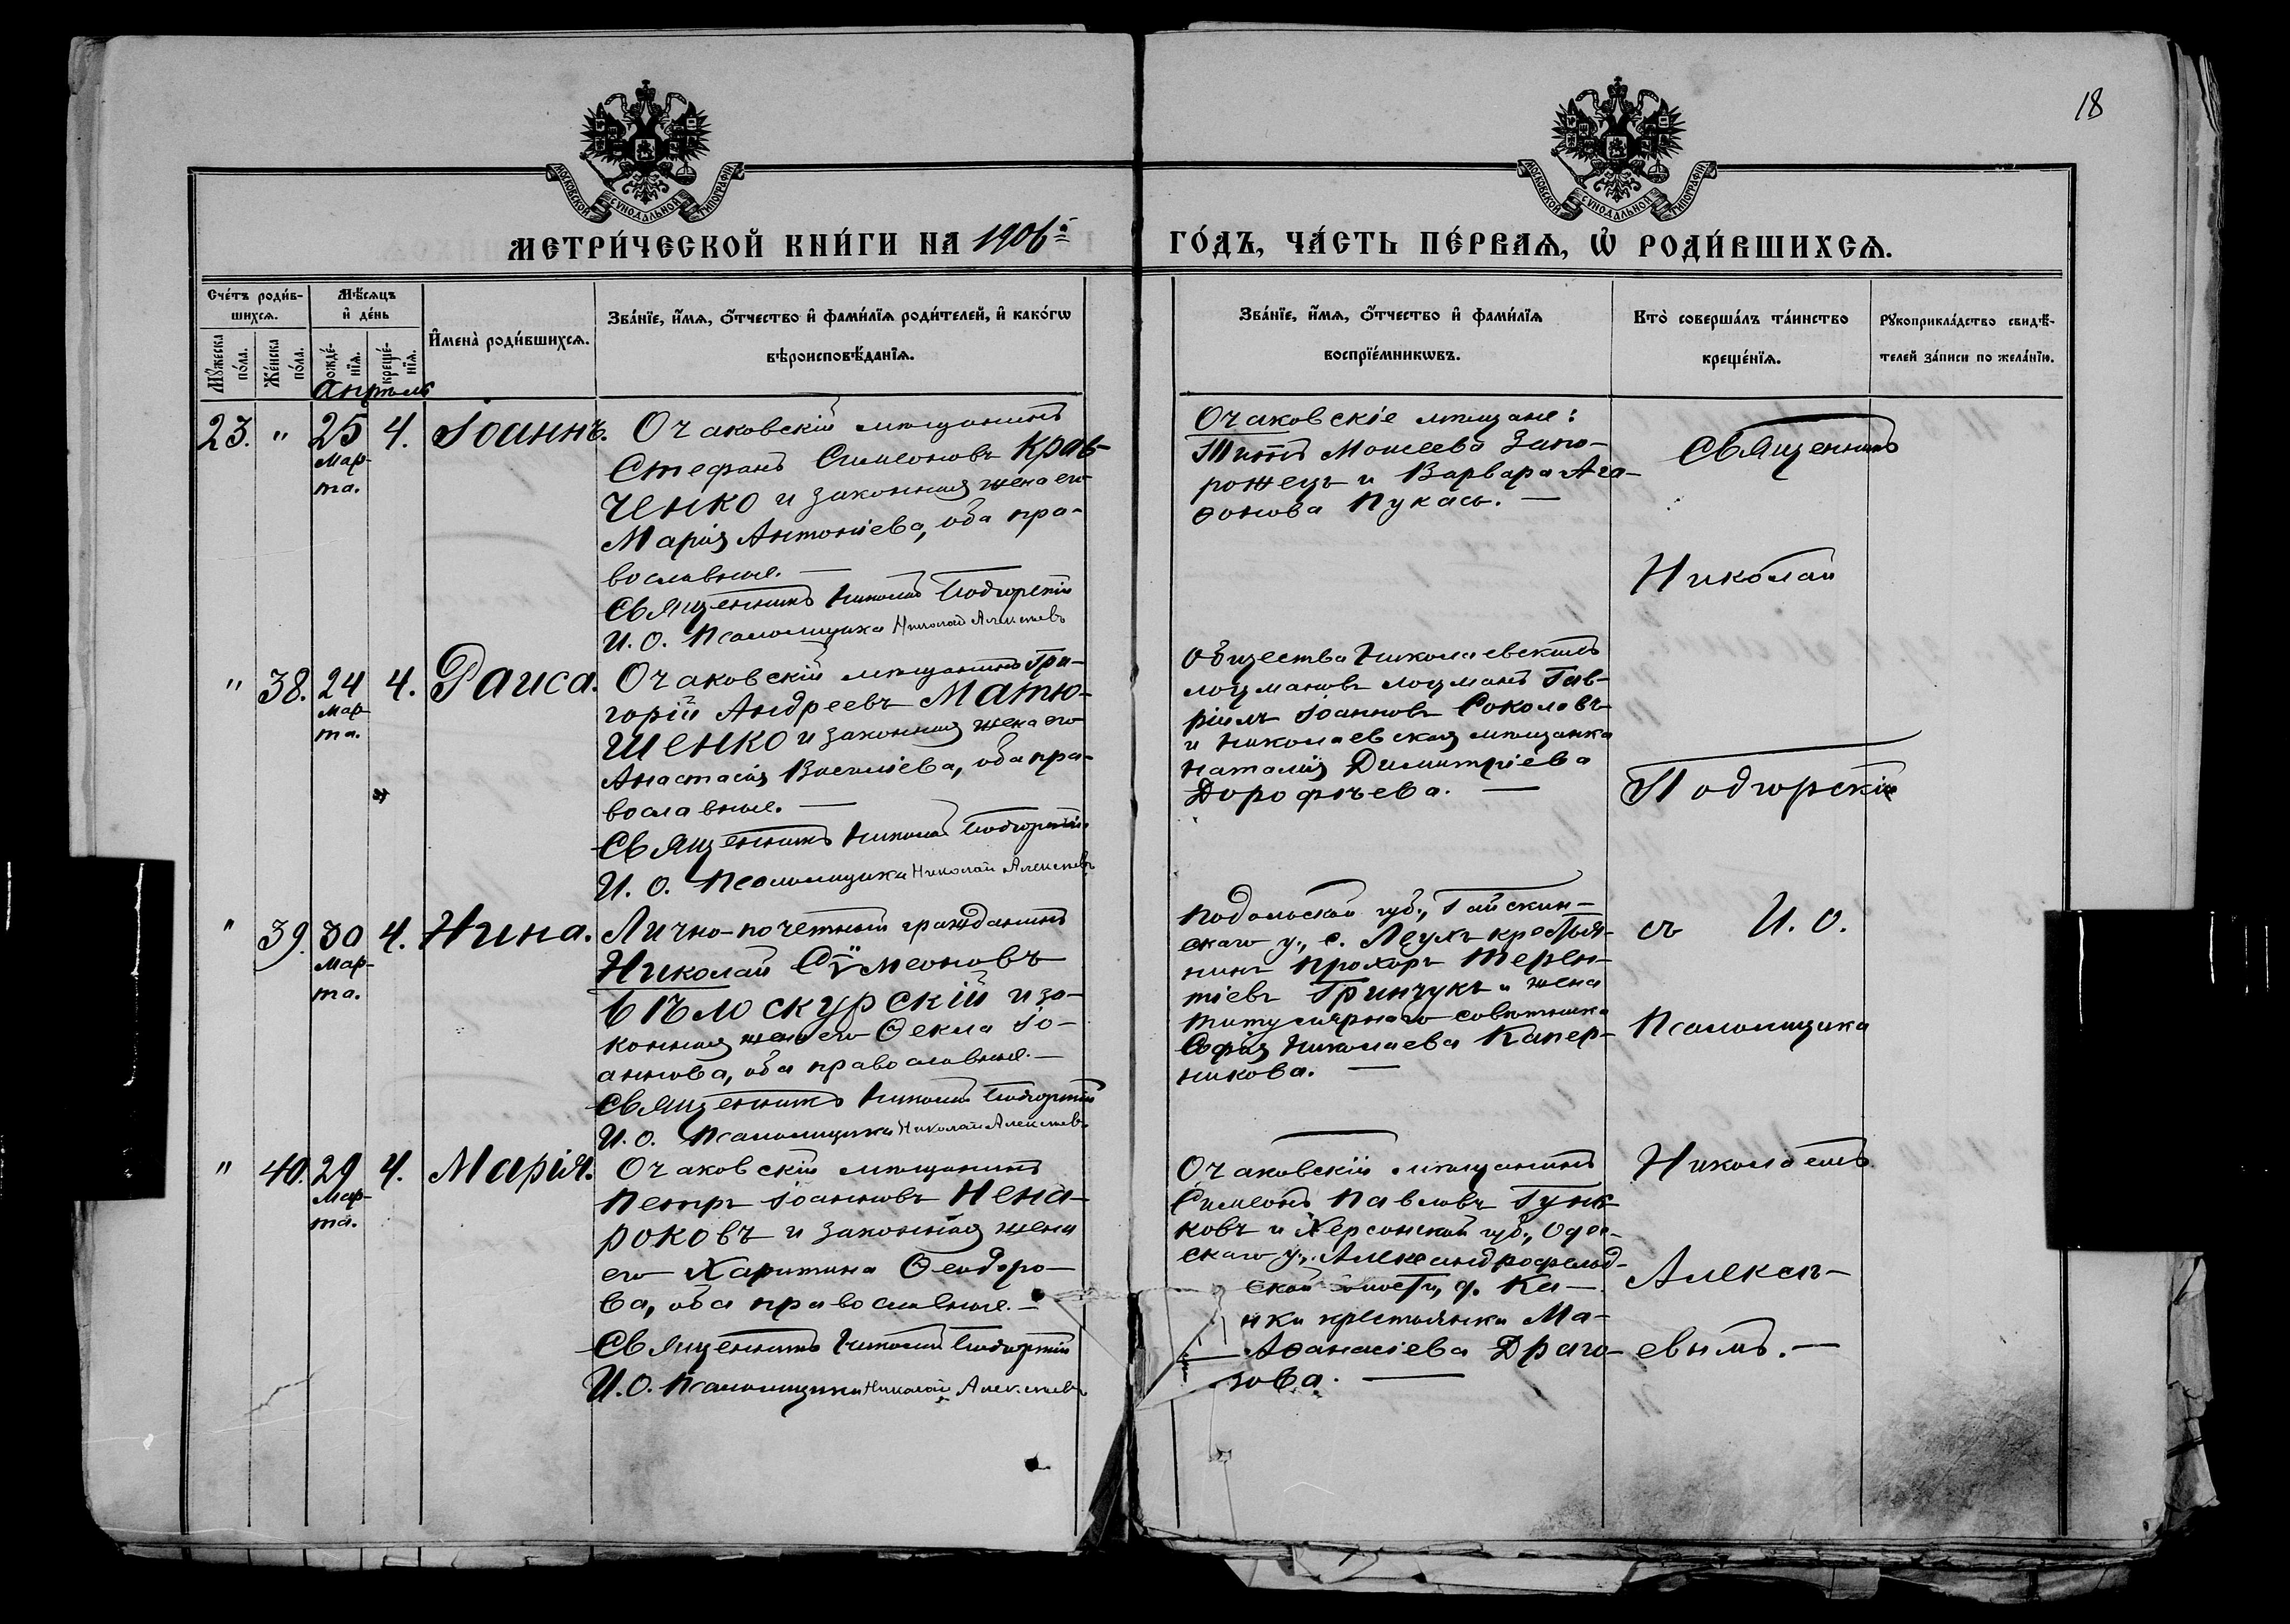 18
МОСКОВСКОЙ СѴНОДАЛЬНОЙ ТИПОГРАФІИ
МОСКОВСКОЙ СѴНОДАЛЬНОЙ ТИПОГРАФІИ
МЕТРИ́ЧЕСКОЙ КНИ́ГИ НА 1906й
ГО́ДЪ, ЧА́СТЬ ПЕ́РВАѦ, Ѡ҆ РОДИ́ВШИХСѦ.
Сче́тъ роди́в-
шихсѧ.
Мꙋ́жеска по́ла.
Же́нска по́ла.
Мѣ́сѧцъ
и҆ де́нь
рожде́-
нїѧ.
креще́-
нїѧ.
И҆мена̀ роди́вшихсѧ.
Зва́нїе, и҆́мѧ, ѻ҆́тчество и҆ фами́лїѧ роди́телей, и҆ како́гѡ
вѣроисповѣ́данїѧ.
Зва́нїе, и҆́мѧ, ѻ҆́тчество и҆ фами́лїѧ
воспрїе́мникѡвъ.
Кто̀ соверша́лъ та́инство
креще́нїѧ.
Рꙋкоприкла́дство свидѣ́-
телей за́писи по жела́нїю.
Апрѣль
23. " 25 Мар-
та.
4. Іоаннъ.
Очаковскій мѣщанинъ
Стефанъ Симеоновъ Крав-
ченко и законная жена его
Марія Антоніева, оба пра-
вославные. —
Священникъ Николай Подгорскій
И. О. Псаломщика Николай Алексѣевъ
Очаковскіе мѣщане:
Титъ Моисеевъ Запо-
рожецъ и Варвара Ага-
ѳонова Пукась. —
Священникъ
Николай
" 38. 24 Мар-
та.
4. Раиса.
Очаковскій мѣщанинъ Гри-
горій Андреевъ Матю-
шенко и законная жена его
Анастасія Василіева, оба пра-
вославные. —
Священникъ Николай Подгорскій
И. О. Псаломщика Николай Алексѣевъ
Общества Николаевскихъ
лоцмановъ лоцманъ Гав-
ріилъ Іоанновъ Соколовъ
и Николаевская мѣщанка
Наталія Димитріева
Дорофѣева. —
Подгорскій
" 39. 30 Мар-
та.
4. Нина.
Лично-почетный гражданинъ
Николай Сѵмеоновъ
Бѣлоскурскій и за-
конная жена его Ѳекла Іо-
аннова, оба православные. —
Священникъ Николай Подгорскій
И. О. Псаломщика Николай Алексѣевъ
Подольской губ., Гайсин-
скаго у., с. крестья-
нинъ Прохоръ Терен-
тіевъ Гринчукъ и жена
титулярнаго совѣтника
Софія Николаева Капер-
никова. —
съ И. О.
Псаломщика
" 40. 29 Мар-
та.
4. Марія.
Очаковскій мѣщанинъ
Петръ Іоанновъ Нена-
роковъ и законная жена
его Харитина Ѳеодоро-
ва, оба православные. —
Священникъ Николай Подгорскій
И. О. Псаломщика Николай Алексѣевъ
Очаковскій мѣщанинъ
Симеонъ Павловъ
ковъ и Херсонской губ., Одес-
скаго у., Александрофельд-
ской волости, д. Ка-
нки крестьянка Ма-
Аѳанасіева Драго-
зова. —
Николаемъ
Алексѣ-
евымъ. —